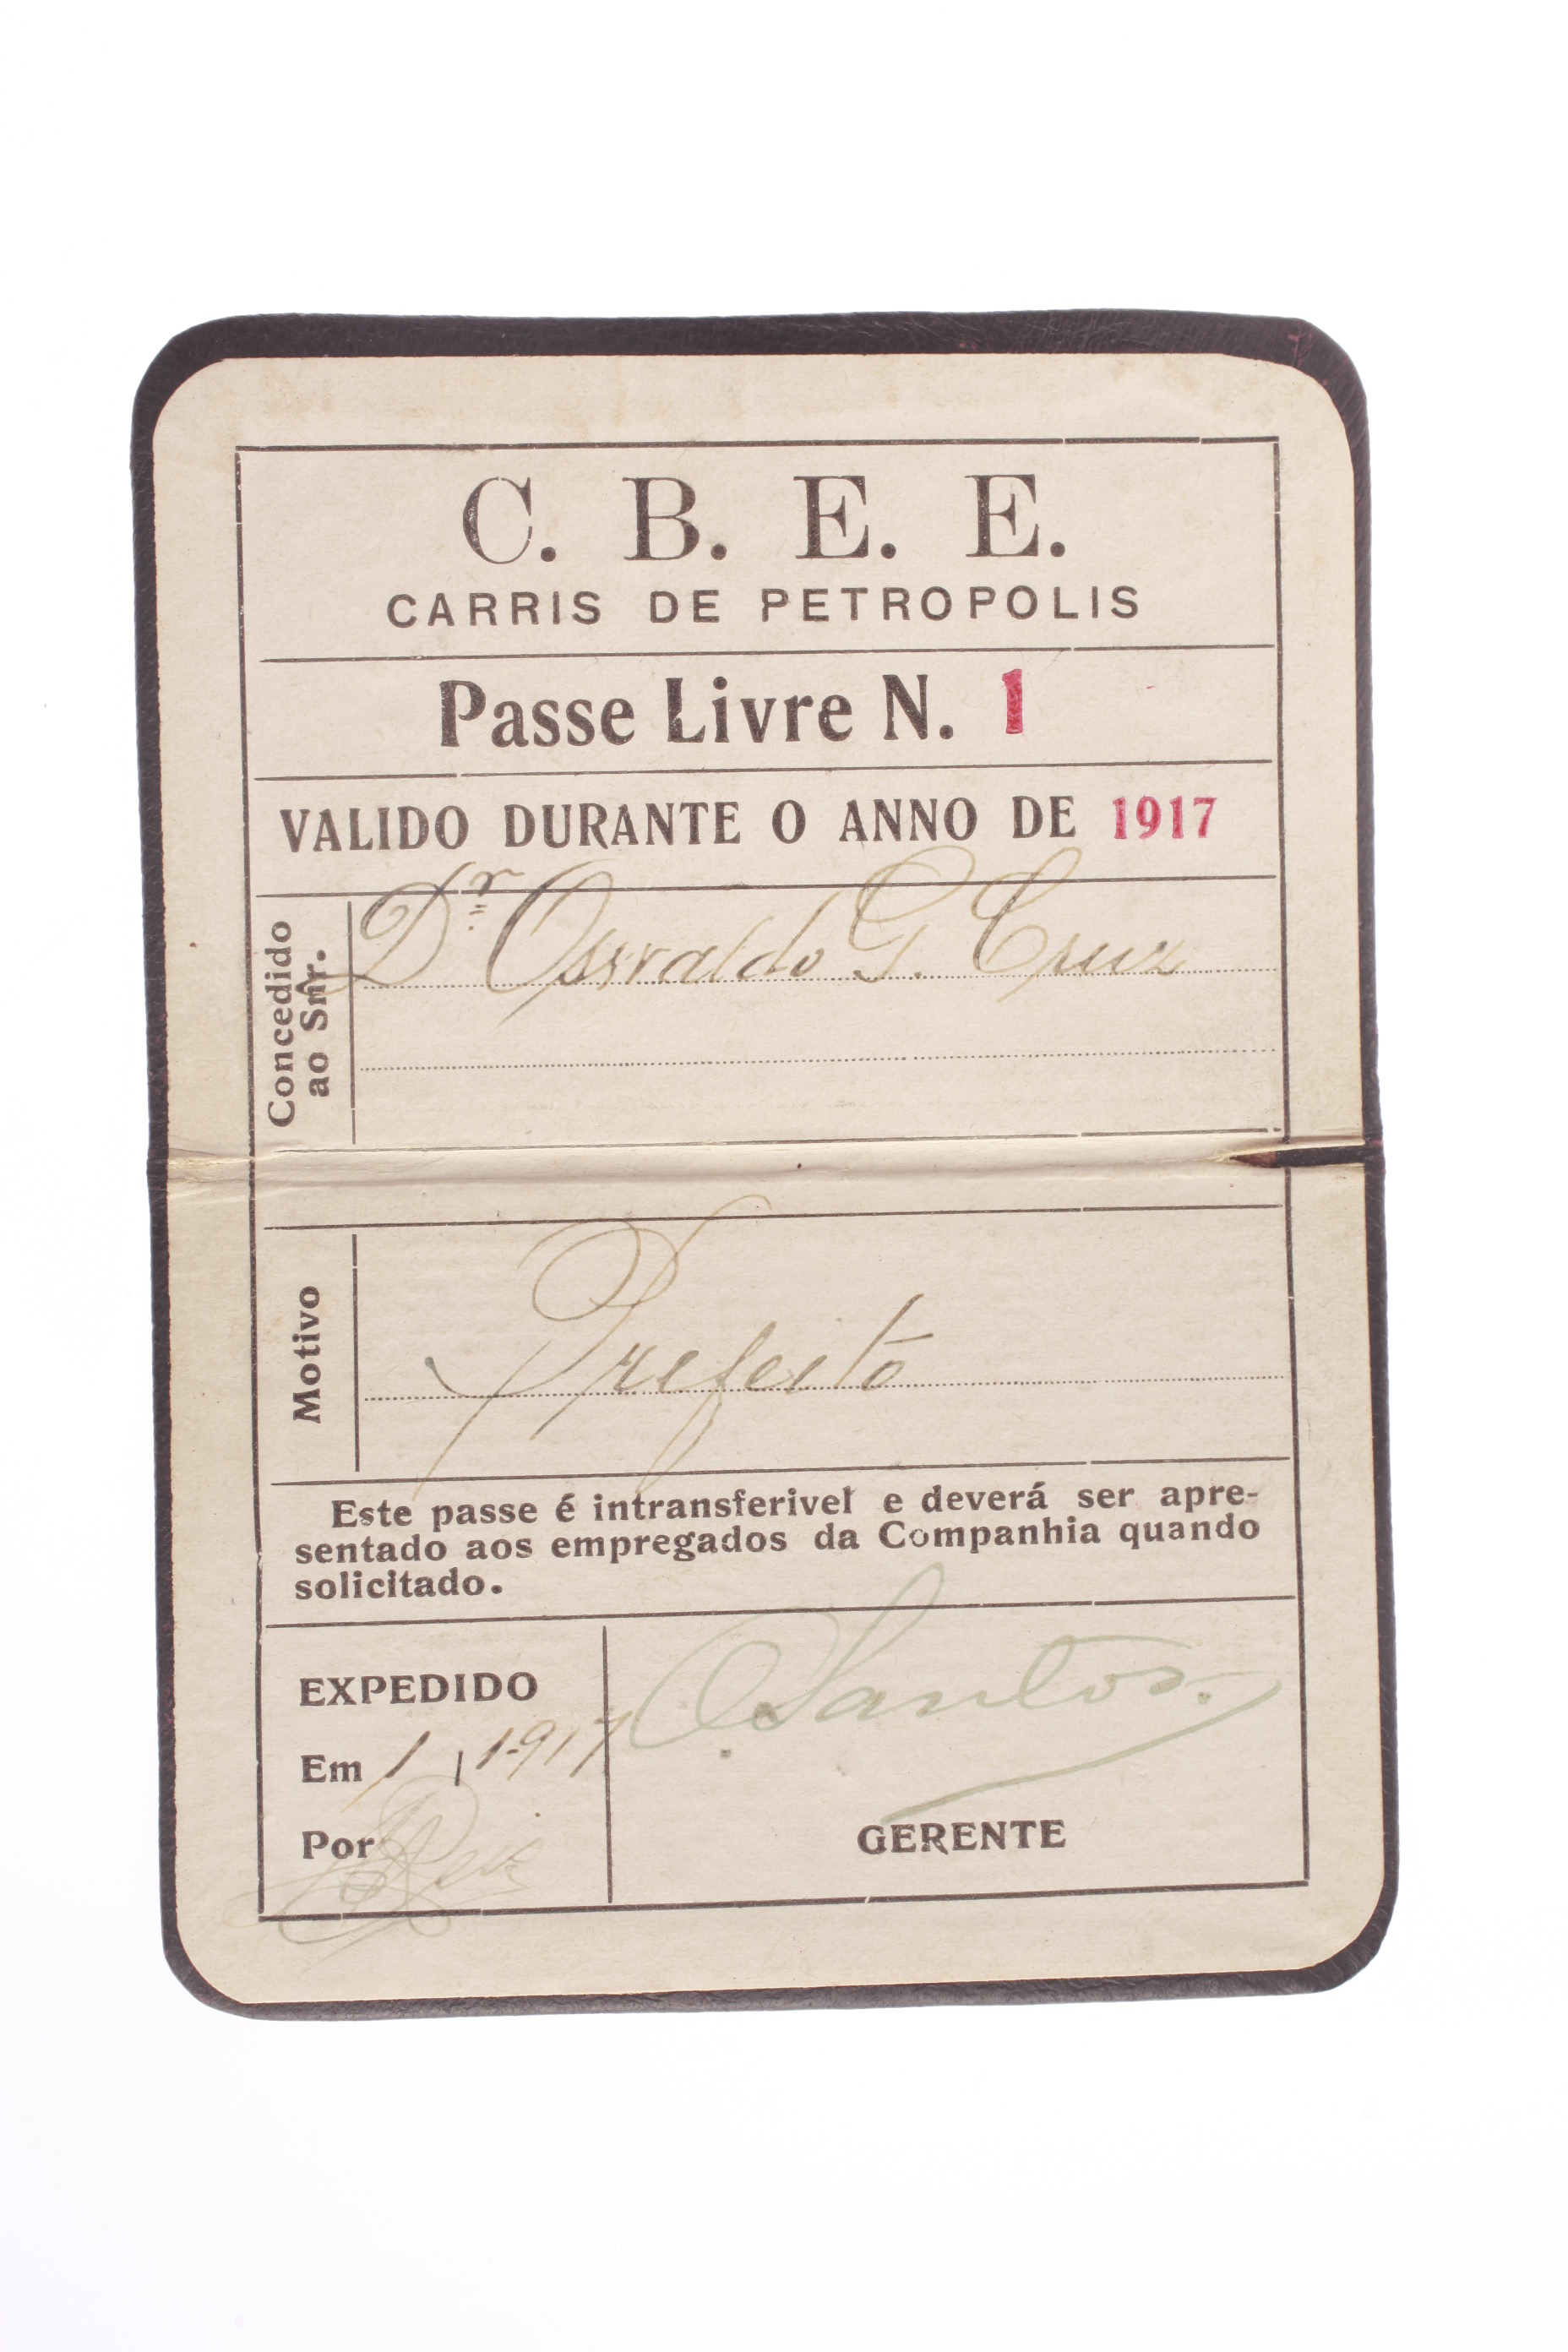 C. B. E. E.
CARRIS DE PETROPOLIS
Passe Livre N. 1
VALIDO DURANTE O ANNO DE 1917
Concedido
ao Snr.
Dr Osvaldo G. Cruz
Motivo
Prefeito
Este passe é intransferivel e deverá ser apre-
sentado aos empregados da Companhia quando
solicitado.
EXPEDIDO
Em 1 1 1917
Por
Santos.
GERENTE